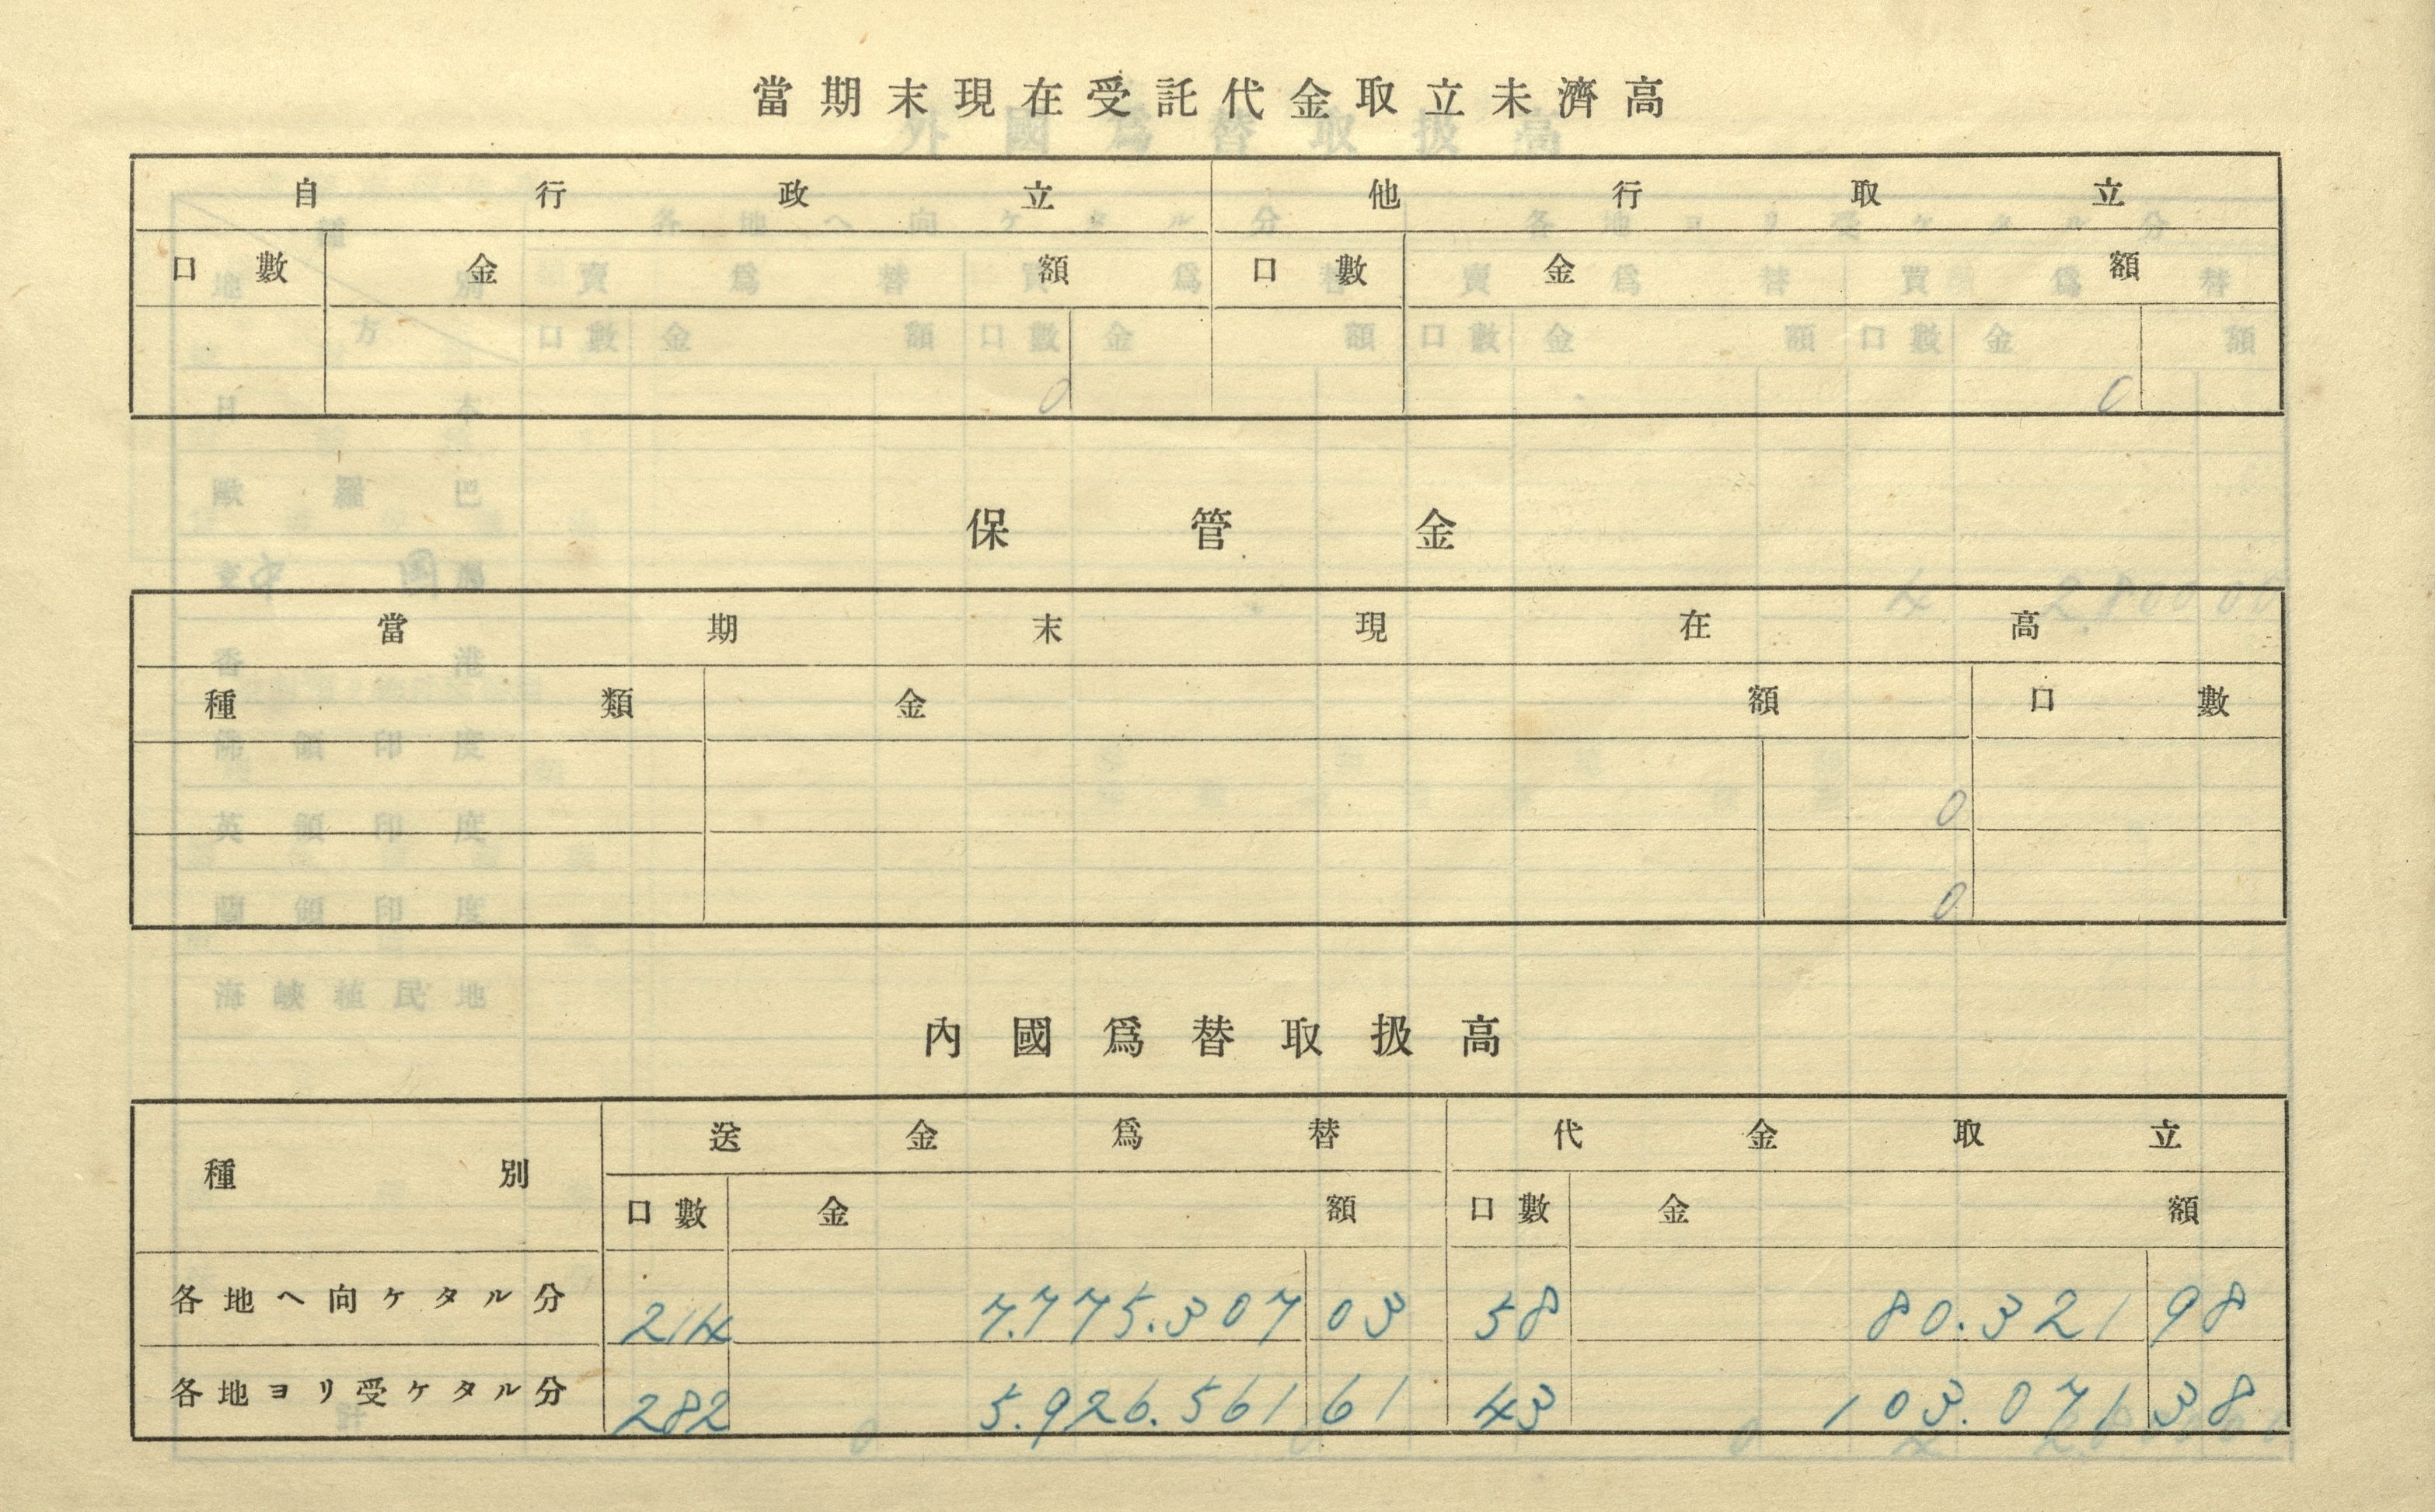 當期末現在受託代金取立未濟高
自行政立 他行取立
口數 金額 口數 金額
0 0
保管金
當期末現在高
種類 金額 口數
0
0
內國爲替取扱高
種別 送金爲替 代金取立
口數 金額 口數 金額
各地ヘ向ケタル分 214 7.775.307 03 58 80.321 98
各地ヨリ受ケタル分 282 5.926.561 61 43 103.071 38